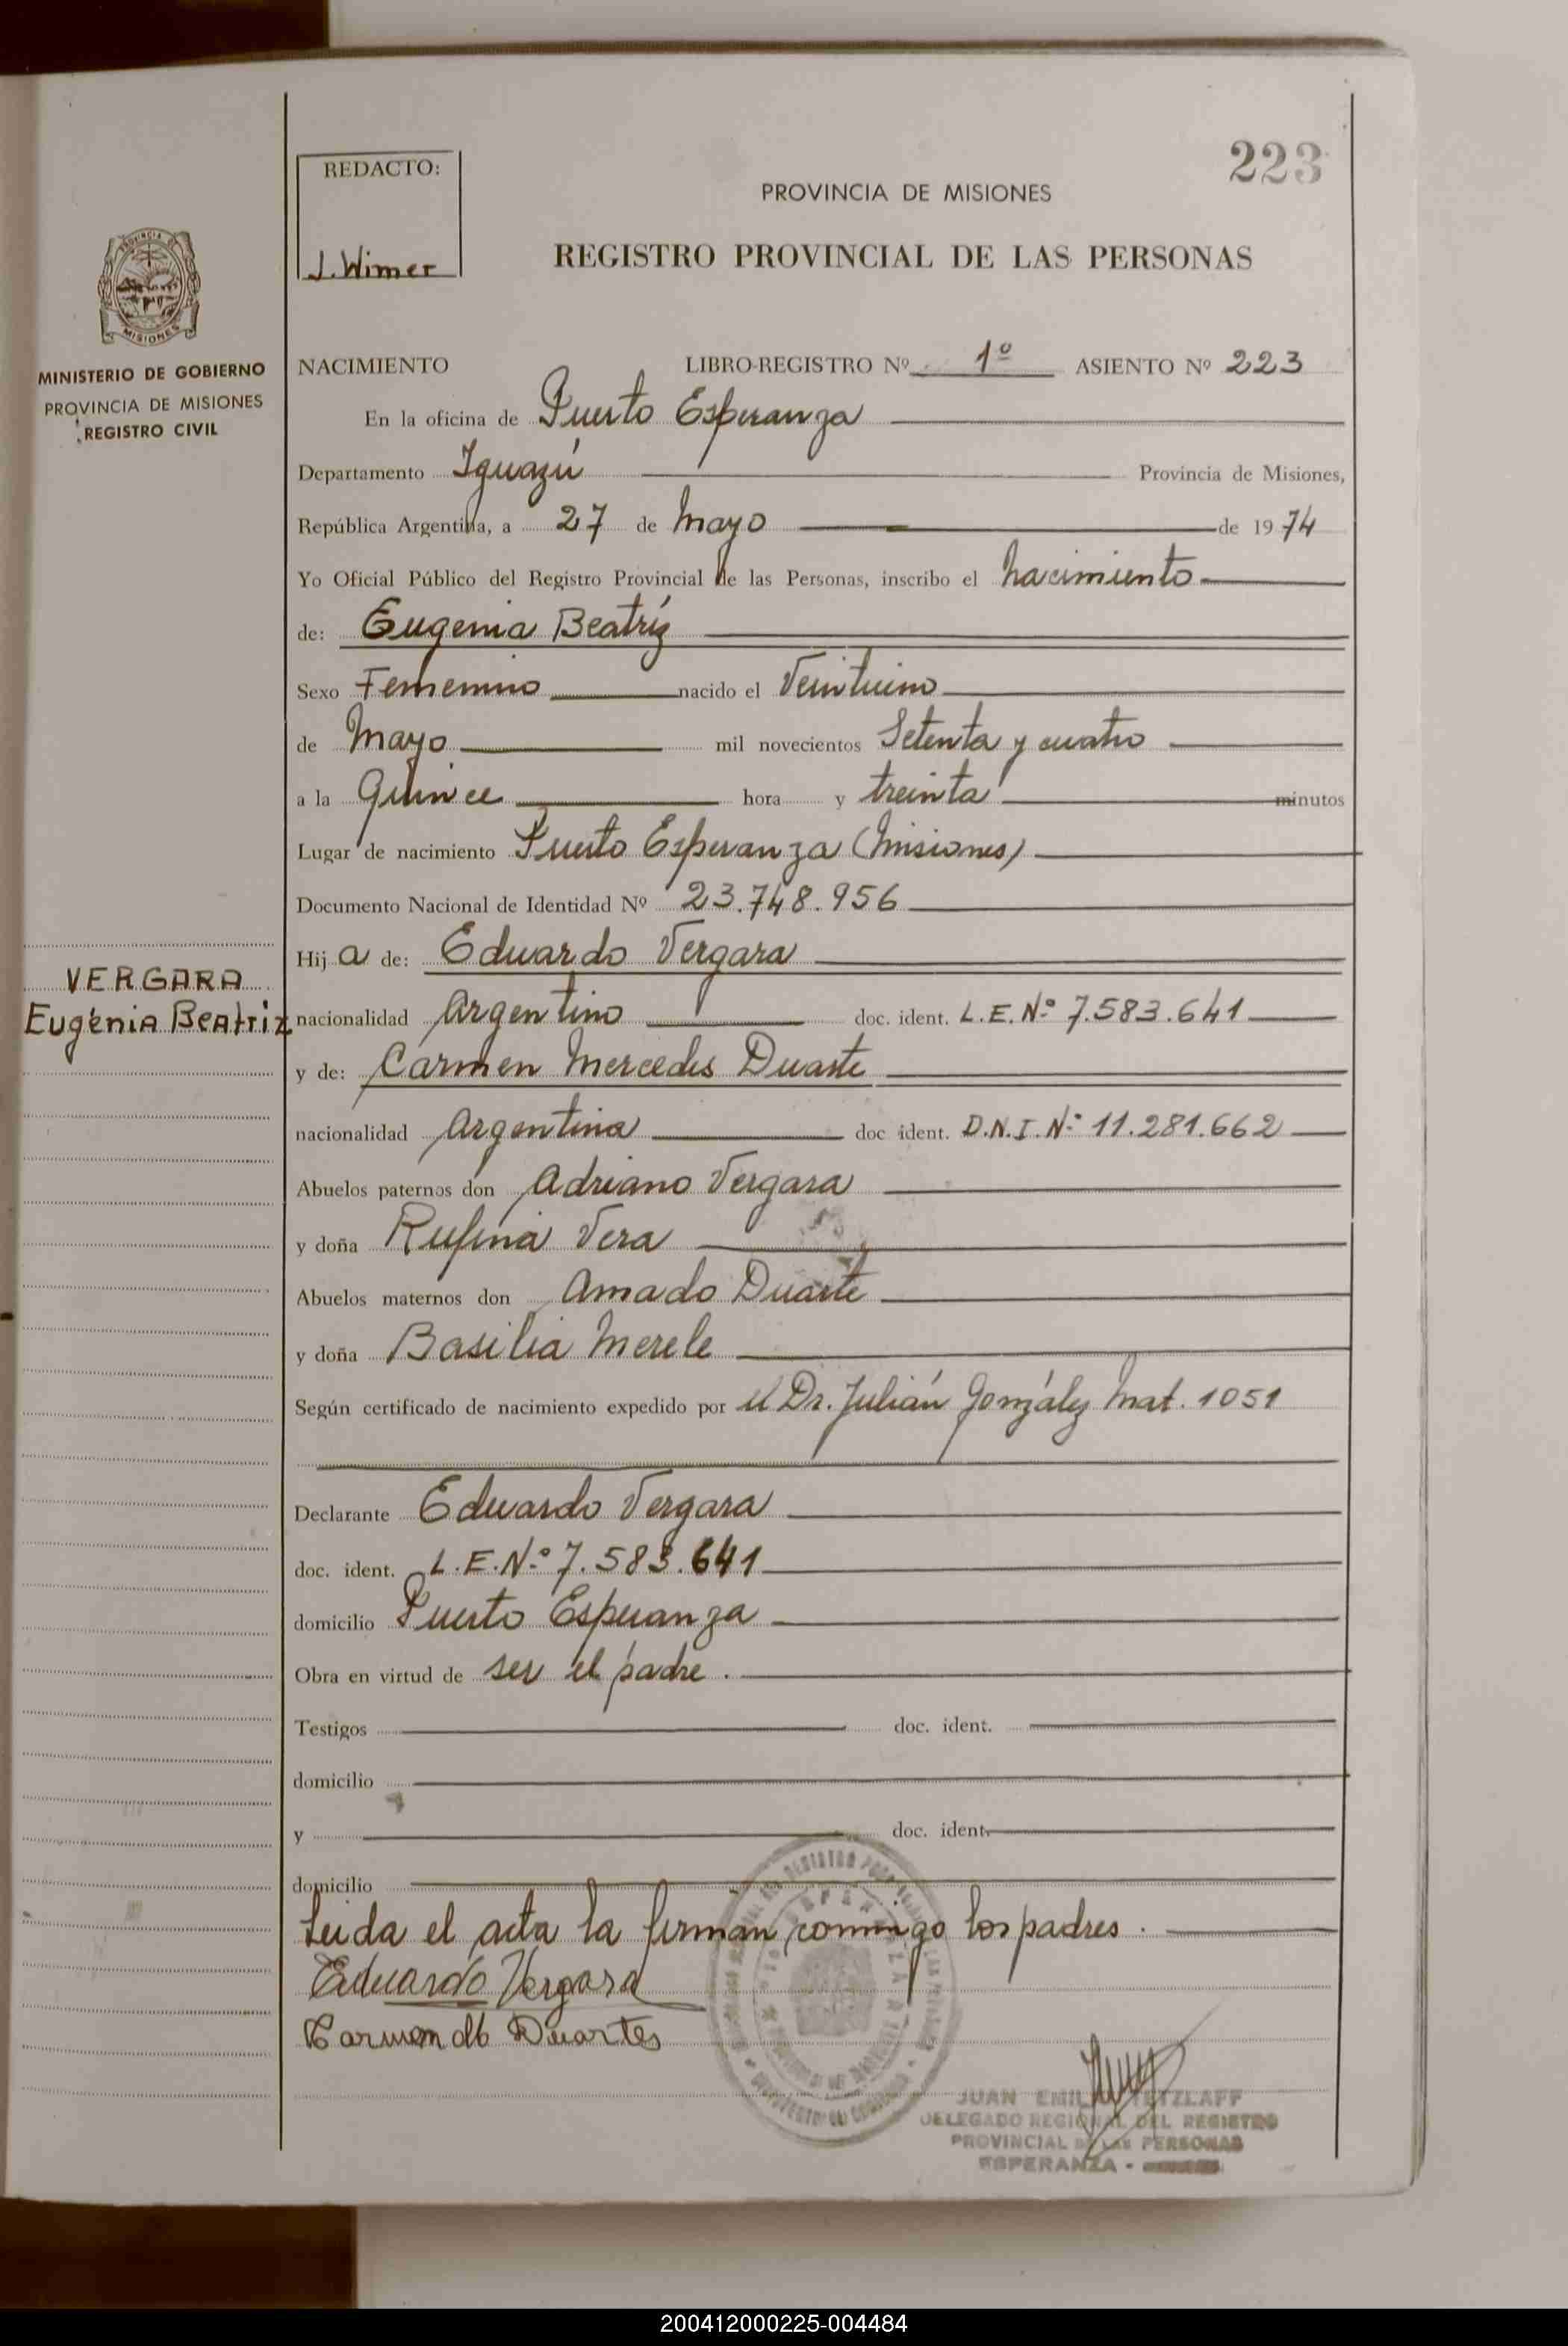 223
REDACTO:
J. Wimer
PROVINCIA DE MISIONES
REGISTRO PROVINCIAL DE LAS PERSONAS
PROVINCIA DE
MISIONES
MINISTERIO DE GOBIERNO
PROVINCIA DE MISIONES
REGISTRO CIVIL
NACIMIENTO LIBRO-REGISTRO Nº 1º ASIENTO Nº 223
En la oficina de Puerto Esperanza
Departamento Iguazú Provincia de Misiones,
República Argentina, a 27 de Mayo de 1974
Yo Oficial Público del Registro Provincial de las Personas, inscribo el nacimiento
de: Eugenia Beatríz
Sexo Femenino nacido el Veintiuno
de Mayo mil novecientos Setenta y cuatro
a la Quince hora y treinta minutos
Lugar de nacimiento Puerto Esperanza (Misiones)
Documento Nacional de Identidad Nº 23.748.956
Hija de: Eduardo Vergara
VERGARA
Eugenia Beatriz
nacionalidad Argentino doc. ident. L.E.Nº 7.583.641
y de: Carmen Mercedes Duarte
nacionalidad Argentina doc ident. D.N.I. Nº 11.281.662
Abuelos paternos don Adriano Vergara
y doña Rufina Vera
Abuelos maternos don Amado Duarte
y doña Basilia Merele
Según certificado de nacimiento expedido por el Dr. Julián González Mat. 1051
Declarante Eduardo Vergara
doc. ident. L.E.Nº 7.583.641
domicilio Puerto Esperanza
Obra en virtud de ser el padre.
Testigos doc. ident.
domicilio
y doc. ident.
domicilio
Leida el acta la firman conmigo los padres.
Eduardo Vergara
Carmen Duartes
JUAN EMILIO
DELEGADO REGIONAL DEL REGISTRO
PROVINCIAL DE LAS PERSONAS
ESPERANZA -
200412000225-004484